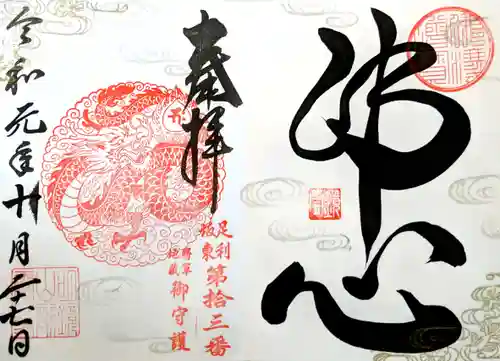 佛心
奉拝
足利
坂東
第拾三番
将軍
地蔵
御守護
令和元年十月二十七日